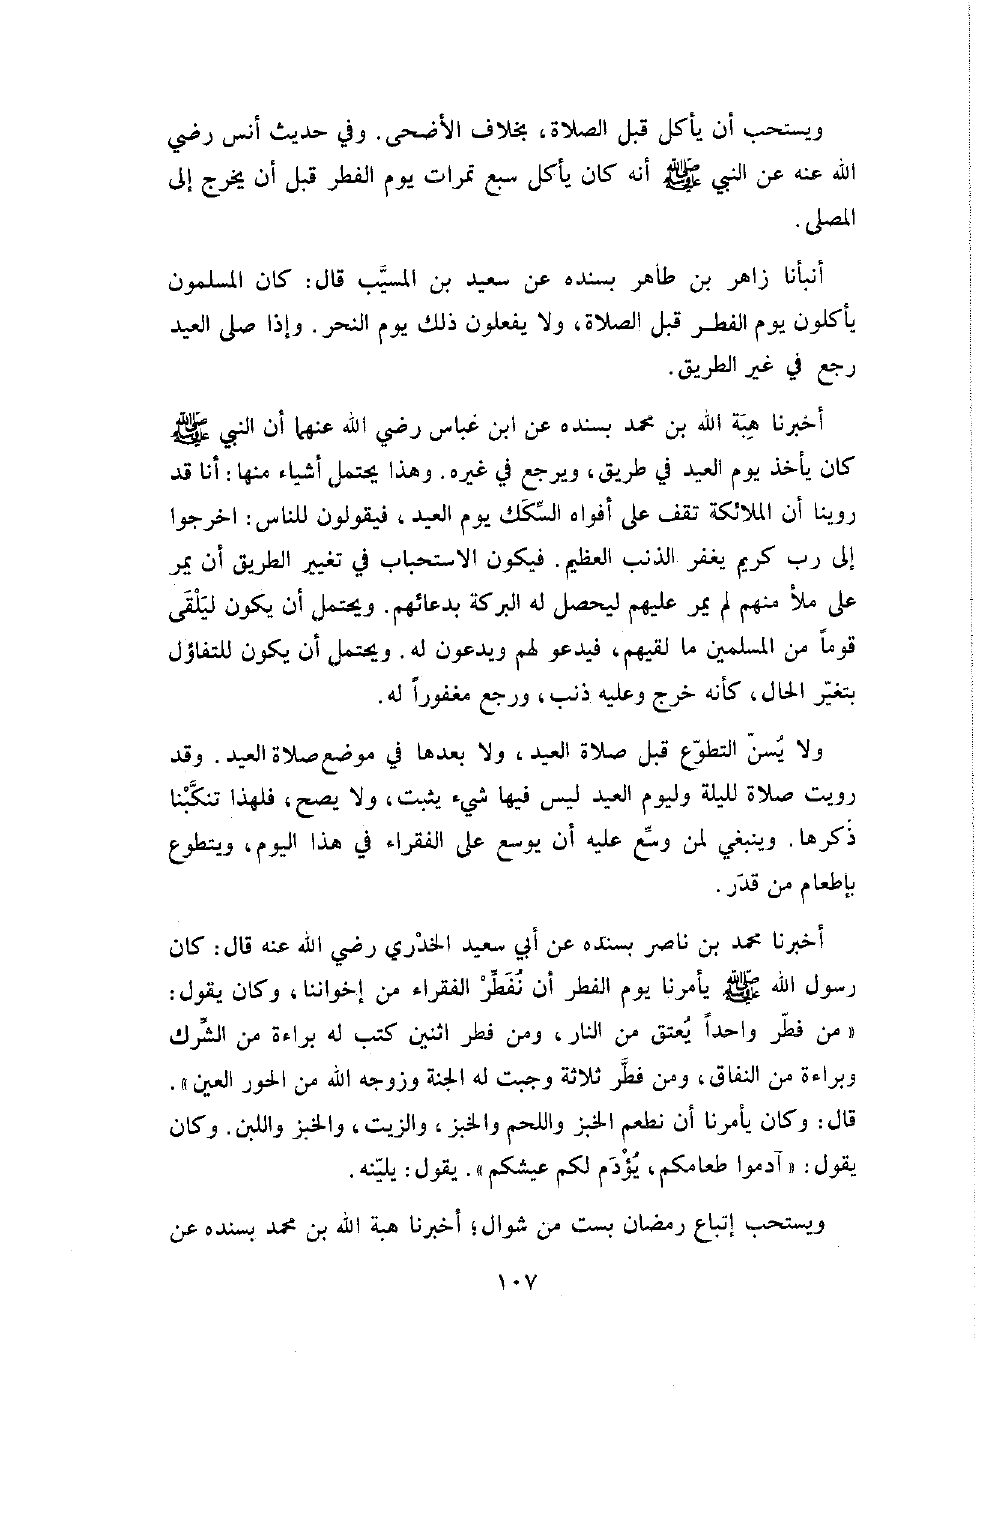 ويستحب أن يأكل قبل الصلاة، بخلاف الأضحى. وفي حديث أنس رضي
الله عنه عن النبي ﷺ أنه كان يأكل سبع تمرات يوم الفطر قبل أن يخرج إلى
المصلى.
أنبأنا زاهر بن طاهر بسنده عن سعيد بن المسيَّب قال: كان المسلمون
يأكلون يوم الفطر قبل الصلاة، ولا يفعلون ذلك يوم النحر. وإذا صلى العيد
رجع في غير الطريق.
أخبرنا هِبَة الله بن محمد بسنده عن ابن عباس رضي الله عنهما أن النبي ﷺ
كان يأخذ يوم العيد في طريق، ويرجع في غيره. وهذا يحتمل أشياء منها: أنا قد
روينا أن الملائكة تقف على أفواه السِّكَك يوم العيد، فيقولون للناس: اخرجوا
إلى رب كريم يغفر الذنب العظيم. فيكون الاستحباب في تغيير الطريق أن يمر
على ملأ منهم لم يمر عليهم ليحصل له البركة بدعائهم. ويحتمل أن يكون ليَلْقَى
قوماً من المسلمين ما لقيهم، فيدعو لهم ويدعون له. ويحتمل أن يكون للتفاؤل
بتغيّر الحال، كأنه خرج وعليه ذنب، ورجع مغفوراً له.
ولا يُسنّ التطوّع قبل صلاة العيد، ولا بعدها في موضع صلاة العيد. وقد
رويت صلاة لليلة وليوم العيد ليس فيها شيء يثبت، ولا يصح، فلهذا تنكَّبْنا
ذكرها. وينبغي لمن وسِّع عليه أن يوسع على الفقراء في هذا اليوم، ويتطوع
بإطعام من قدَر.
أخبرنا محمد بن ناصر بسنده عن أبي سعيد الخدْري رضي الله عنه قال: كان
رسول الله ﷺ يأمرنا يوم الفطر أن نُفَطِّرْ الفقراء من إخواننا، وكان يقول:
«من فطّر واحداً يُعتق من النار، ومن فطر اثنين كتب له براءة من الشِّرك
وبراءة من النفاق، ومن فطَّر ثلاثة وجبت له الجنة وزوجه الله من الحور العين».
قال: وكان يأمرنا أن نطعم الخبز واللحم والخبز، والزيت، والخبز واللبن. وكان
يقول: «آدموا طعامكم، يُؤْدَم لكم عيشكم». يقول: يليّنه.
ويستحب إتباع رمضان بست من شوال؛ أخبرنا هبة الله بن محمد بسنده عن
١٠٧